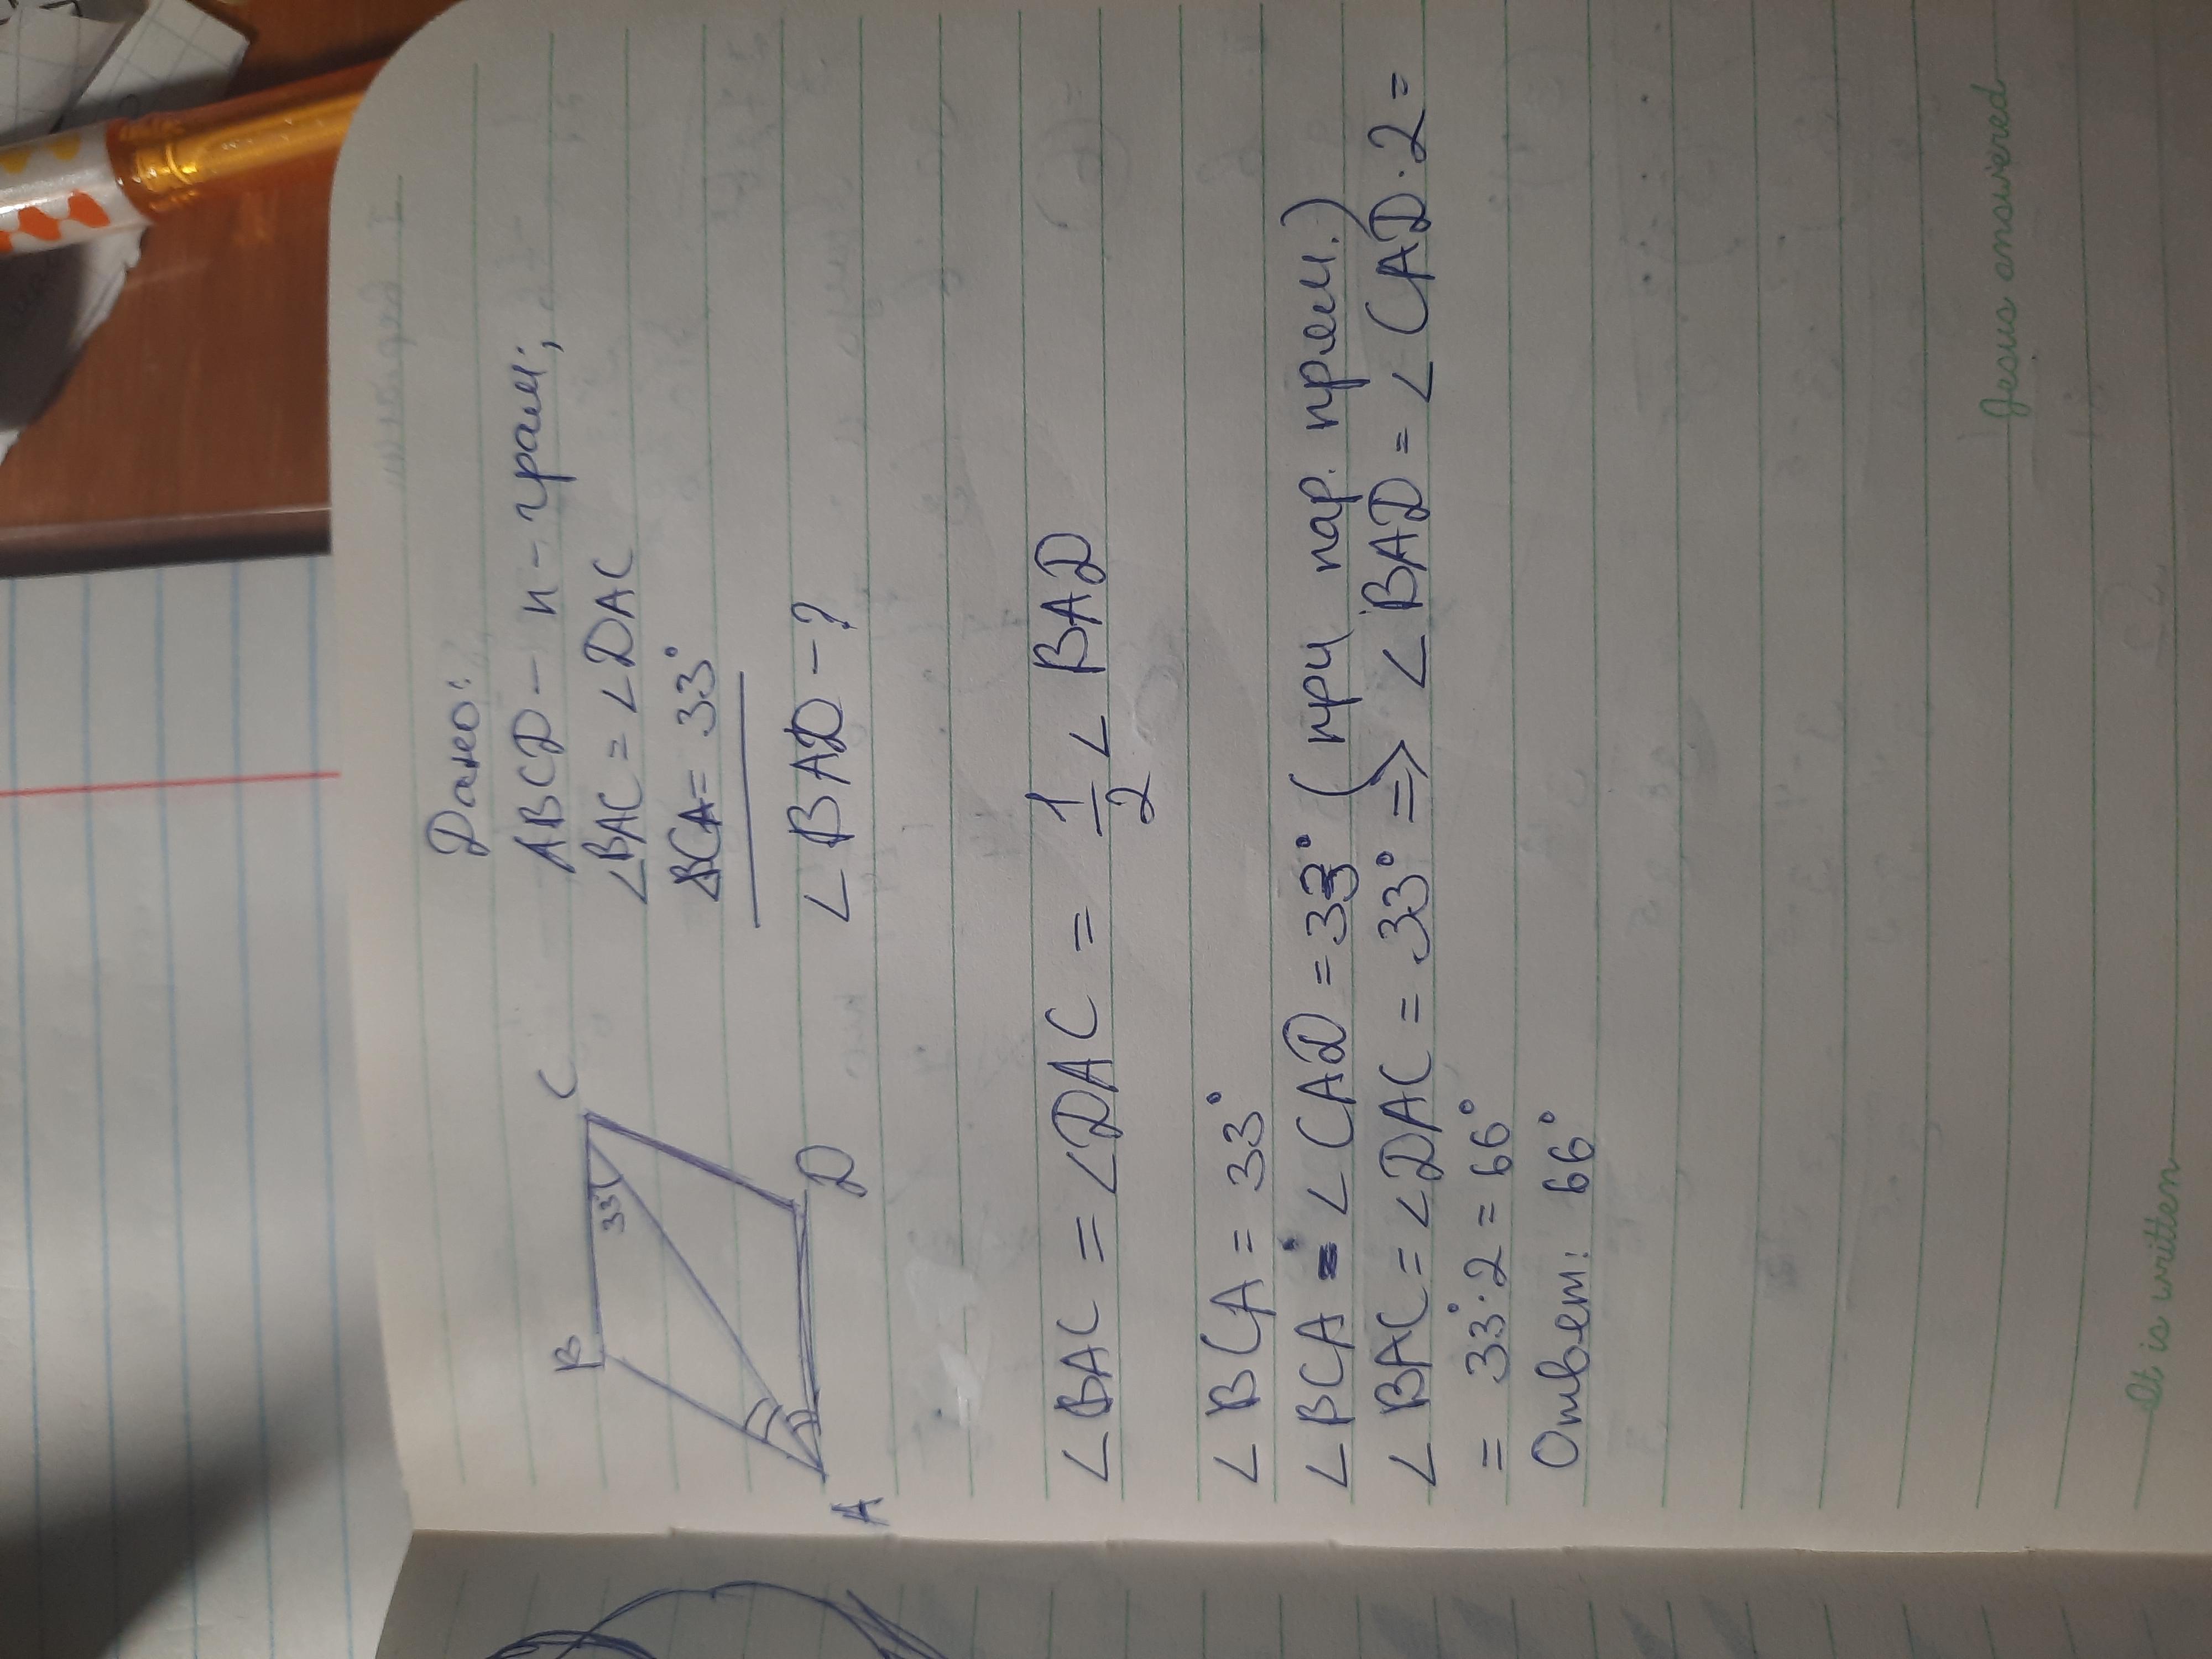 Дано:
ABCD - п-грам;
∠BAC = ∠DAC
∠BCA = 33°
∠BAD - ?
B
C
33
A
D
∠BAC = ∠DAC = 1/2 ∠BAD
∠BCA = 33°
∠BCA = ∠CAD = 33° (при пар. прям.)
∠BAC = ∠DAC = 33° => ∠BAD = ∠CAD · 2 =
= 33° · 2 = 66°
Ответ: 66°
It is written
Jesus answered